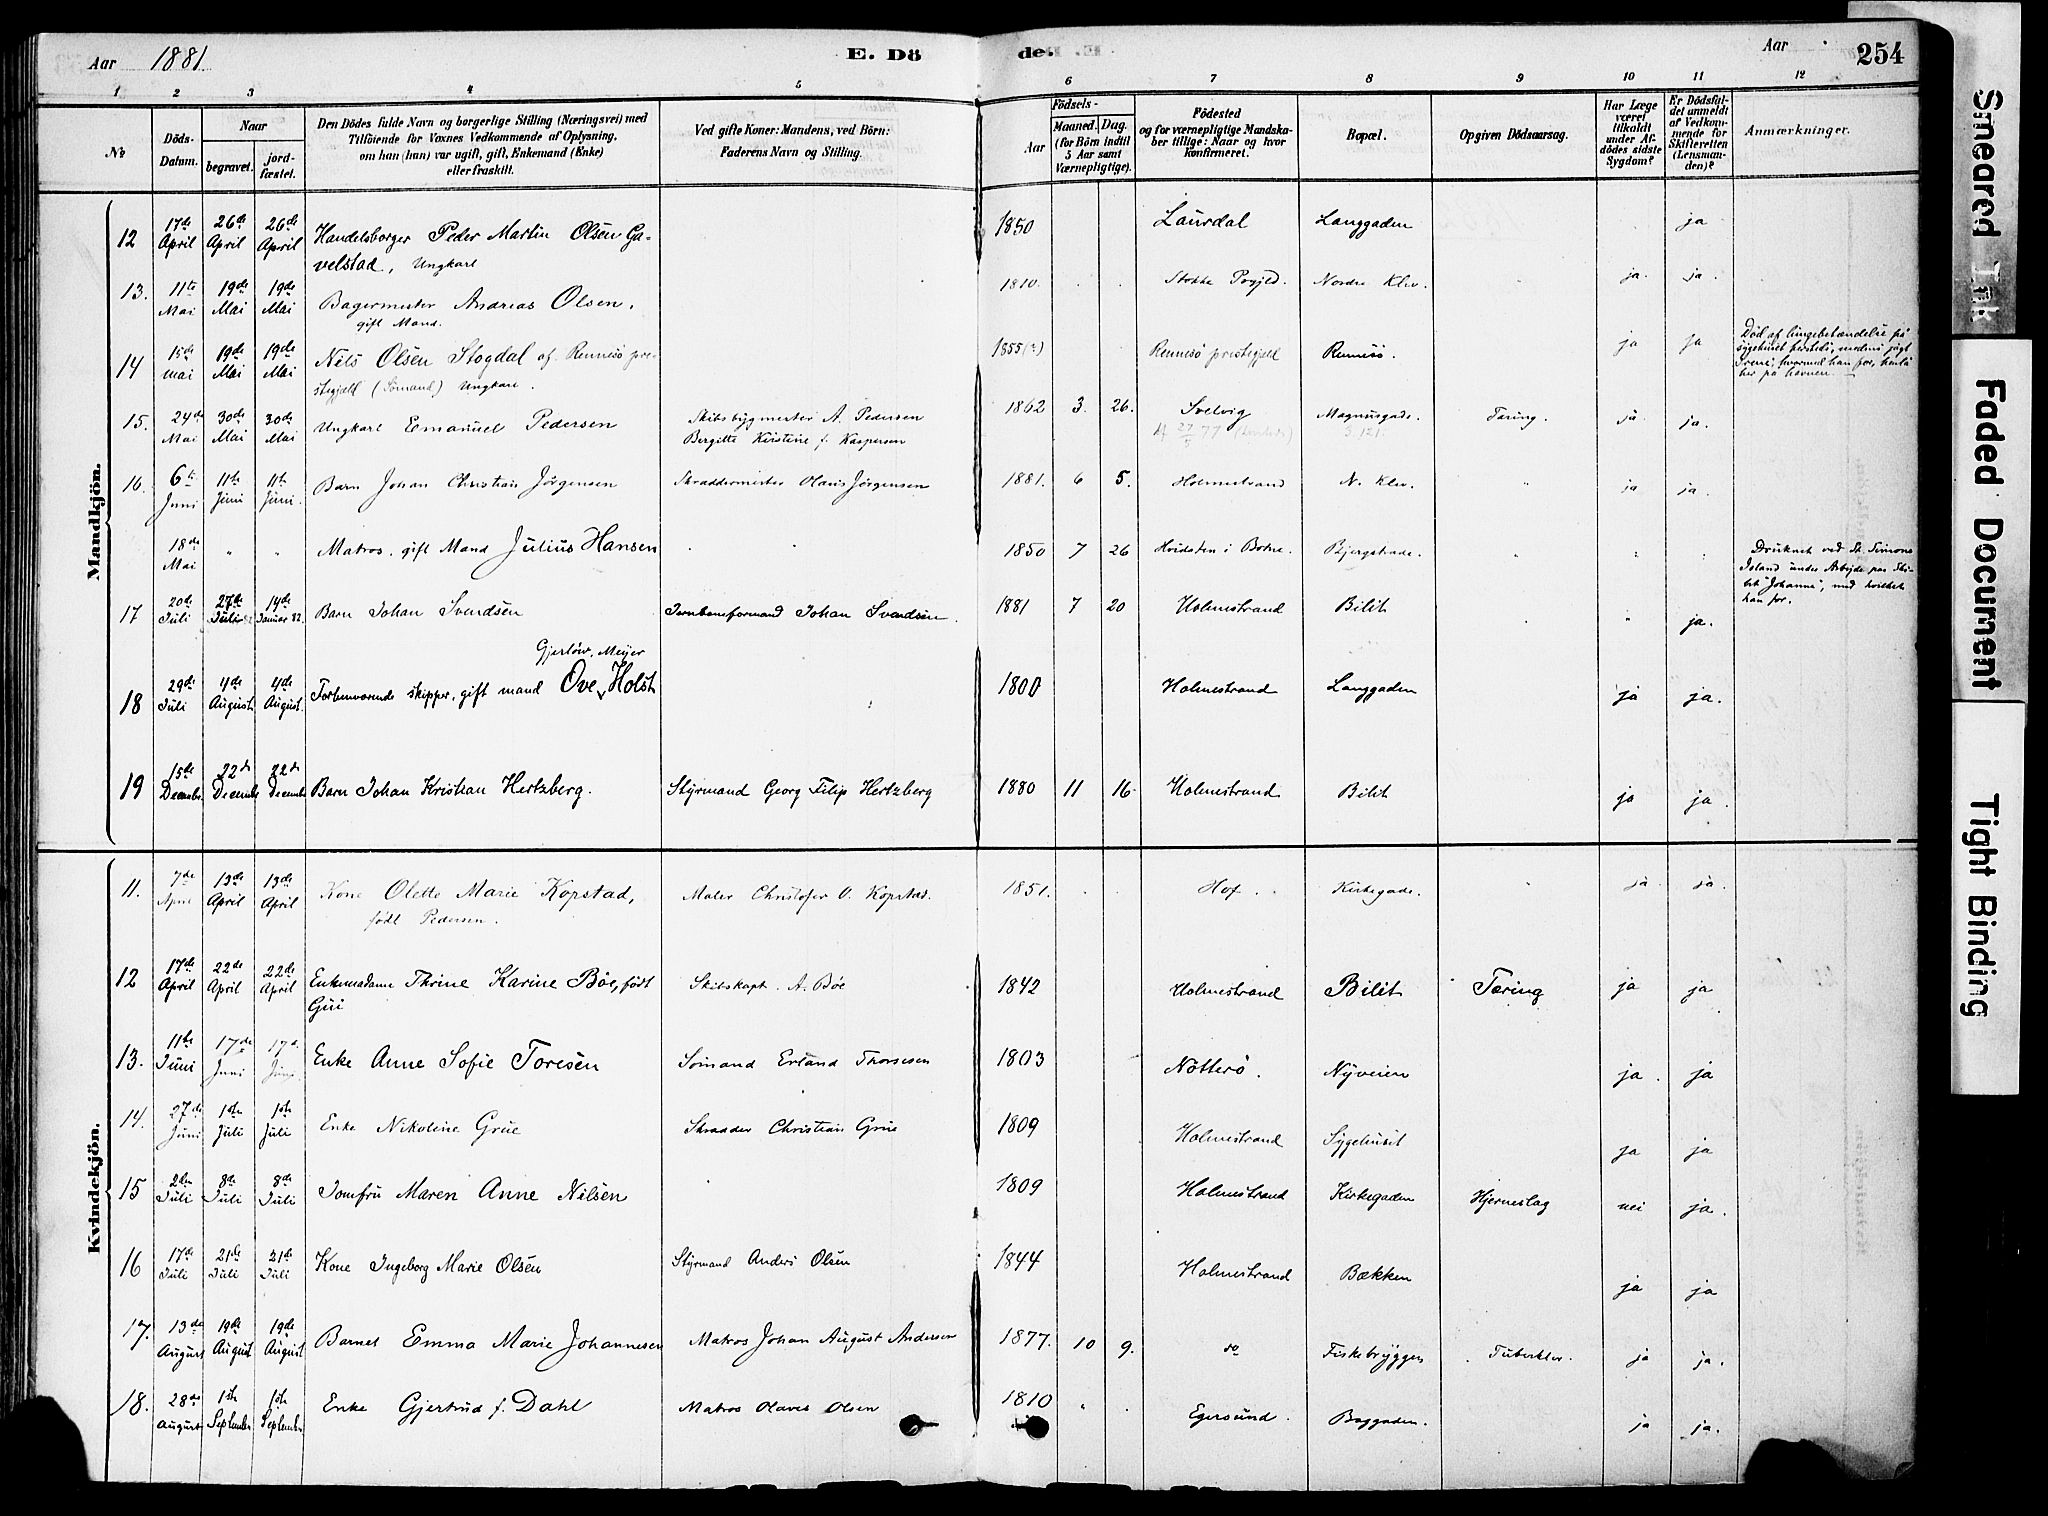 Aar 1881.
E. Dö
de.
Aar
254
1 2 3 4 5 6 7 8 9 10 11 12
No
Döds-Datum.
Naar
begravet.
jord-fæstet.
Den Dödes fulde Navn og borgerlige Stilling (Næringsvei) med
Tilföiende for Voxnes Vedkommende af Oplysning,
om han (hun) var ugift, gift, Enkemand (Enke)
eller fraskilt.
Ved gifte Koner: Mandens, ved Börn:
Faderens Navn og Stilling.
Födsels-
Aar
Maaned. Dag.
(for Börn indtil
5 Aar samt
Værnepligtige).
Födested
og for værnepligtige Mandska-
ber tillige: Naar og hvor
Konfirmeret.
Bopæl.
Opgiven Dödsaarsag.
Har Læge
været
tilkaldt
under Af-
dödes sidste
Sygdom?
Er Dödsfal-
det anmeldt
af Vedkom-
mende for
Skifteretten
(Lensman-
den)?
Anmærkninger.
Mandkjön.
12 17de April 26de April 26de April Handelsborger Peder Martin Olsen Ga- 1850 Laurdal Langgaden ja
velstad, Ungkarl
13. 11te Mai 19de Mai 19de Mai Bagermester Andreas Olsen. 1810. Stokke Prgjld. Nordre Klev. ja. ja.
gift Mand.
14 15de Mai 19de Mai 19de Mai Nils Olsen Stogdal af Rennesö pre- 1855(?) Rennesö prestegjeld Rennesö. ja ja
stegjeld (Sömand) Ungkarl.
Død af lungebetændelse på
sygehuset hersteds;
her på havnen.
15. 24de Mai 30de Mai 30de Mai Ungkarl Emanuel Pedersen Skibsbygmester A. Pedersen 1862 3. 26. Svelvig Magnusgade. Tæring. ja ja.
Bergitte Kirstine f. Kaspersen 27/5 77
16. 6te Juni 11te Juni 11te Juni. Barn Johan Christian Jörgensen Skræddermester Olaus Jörgensen 1881. 6 5. Holmestrand N. Klev. " ja ja.
18de Mai " " Matros, gift Mand Julius Hansen 1850 7 26 Hvidsten i Botne. Bjergstrade. "
Druknet ved St. Simons
Island under Arbejde paa Ski-
bet "Johanna", med hvilket
han for.
17 20de Juli 27de Juli 14de Januar 82. Barn Johan Svendsen Jernbaneformand Johan Svendsen. 1881 7 20 Holmestrand Bilit " ja.
Gjerlöw, Meyer
18 29de Juli 4de August 4de August. Forhenværende skipper, gift mand Ove Holst 1800 Holmestrand Langgaden ja ja.
19 15de Decembr. 22de Decembr 22de Decembr Barn Johan Kristian Hertzberg. Styrmand Georg Filip Hertzberg 1880 11 16. Holmestrand Bilit ja ja.
Kvindekjön.
11. 7de April 13de April 13de April Kone Olette Marie Kopstad, Maler Christofer O. Kopstad. 1851. Hof. Kirkegade. " ja. ja.
født Pedersen.
12 17de April 22de April 22de April Enkemadame Thrine Karine Böe, født Skibskapt. A. Böe 1842 Holmestrand Bilit Tæring ja ja
Gui
13. 11te Juni 17de Juni 17de Juni Enke Anne Sofie Toresen Sömand Erland Thoresen 1803 Nötterö. Nyveien ja. ja
14. 27de Juni 1ste Juli 1ste Juli Enke Nikoline Grue Skrædder Christian Grue 1809 Holmestrand Sygehuset ja ja
15 2den Juli 8de Juli 8de Juli Jomfru Maren Anne Nilsen 1809 Holmestrand Kirkegaden Hjerneslag nei ja.
16 17de Juli 21de Juli 21de Juli Kone Ingeborg Marie Olsen Styrmand Anders Olsen 1844 Holmestrand Bækken ja ja
17. 13de August 19de August 19de August Barnet Emma Marie Johannesen Matros Johan August Andersen 1877. 10 9. do Fiskebryggen Tuberkler. ja ja.
18. 28de August 1ste September 1ste September Enke Gjertrud f. Dahl Matros Olaves Olsen 1810 " Egersund. Baggaden. ja ja.
Smeared Ink
Faded Document
Tight Binding